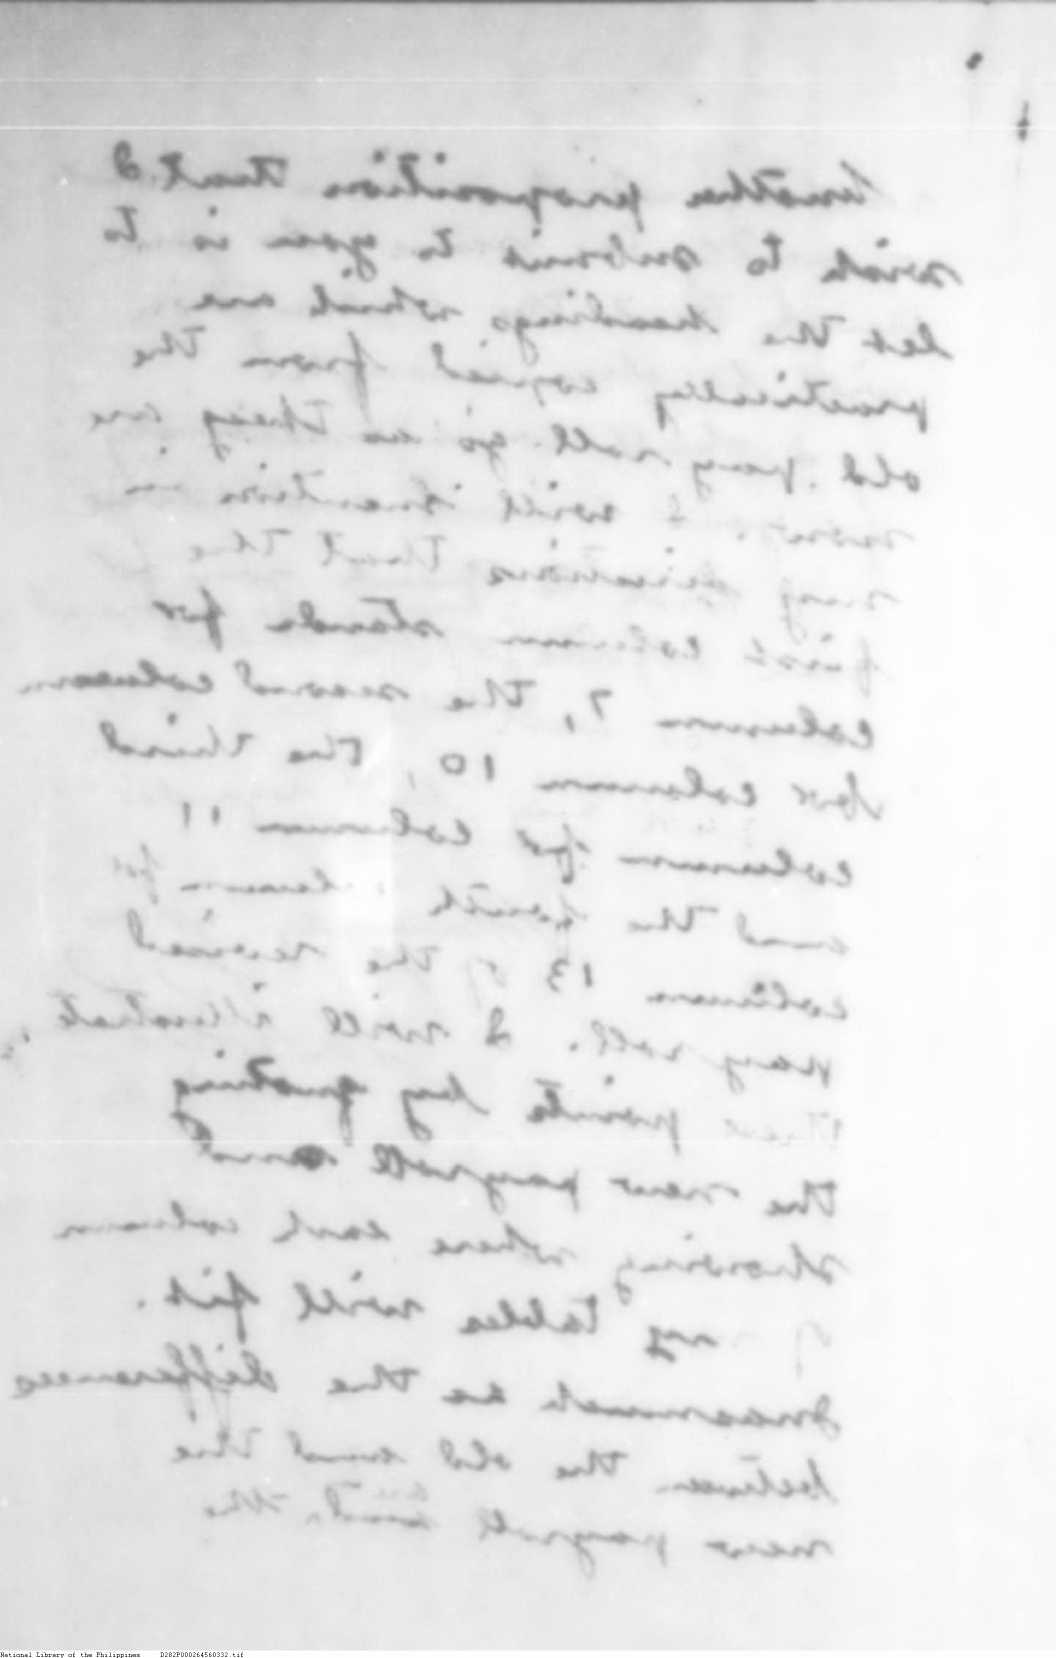 Another proposition that I
wish to submit to you is to
let the headings which are
practically copied from the
old payroll go as they are
now. I will mention in
my that the
first column stands for
column 7, the second column
for column 10, the third
column for column 11
and the fourth column for
column 13 of the revised
payroll. I will illustrate
these points by quoting
the new payroll and
showing where each column
of my tables will fit.
Inasmuch as the differences
between the old and the
new payroll and the
National Library of the Philippines D282P000264560332.tif